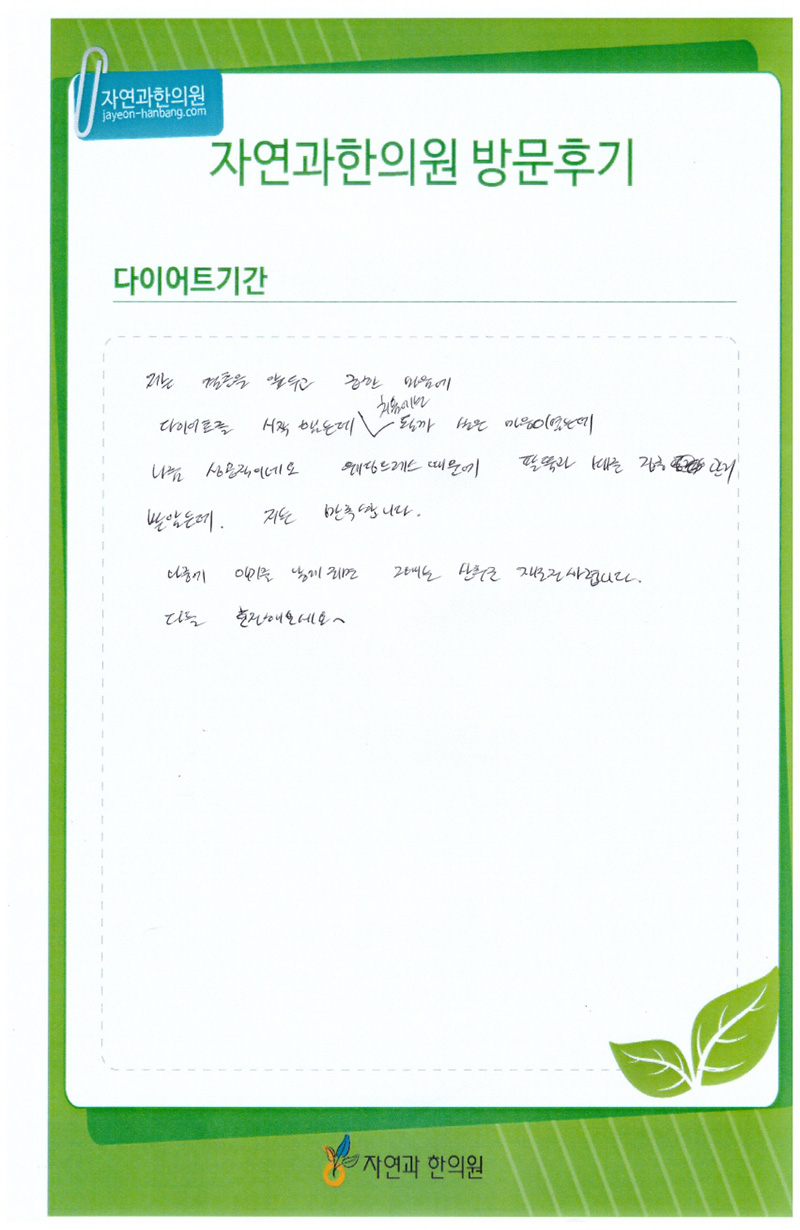 자연과한의원
jayeon-hanbang.com
자연과한의원 방문후기
다이어트기간
저는 결혼을 앞두고 급한 마음에
처음에는
다이어트를 시작 했는데 될까 싶은 마음이었는데
나름 성공적이네요 웨딩드레스 때문에 팔뚝과 배를 집중 관리
받았는데. 저는 만족합니다.
나중에 아기를 낳게 되면 그때는 산후로 재도전 하렵니다.
다들 도전해보세요~
자연과 한의원